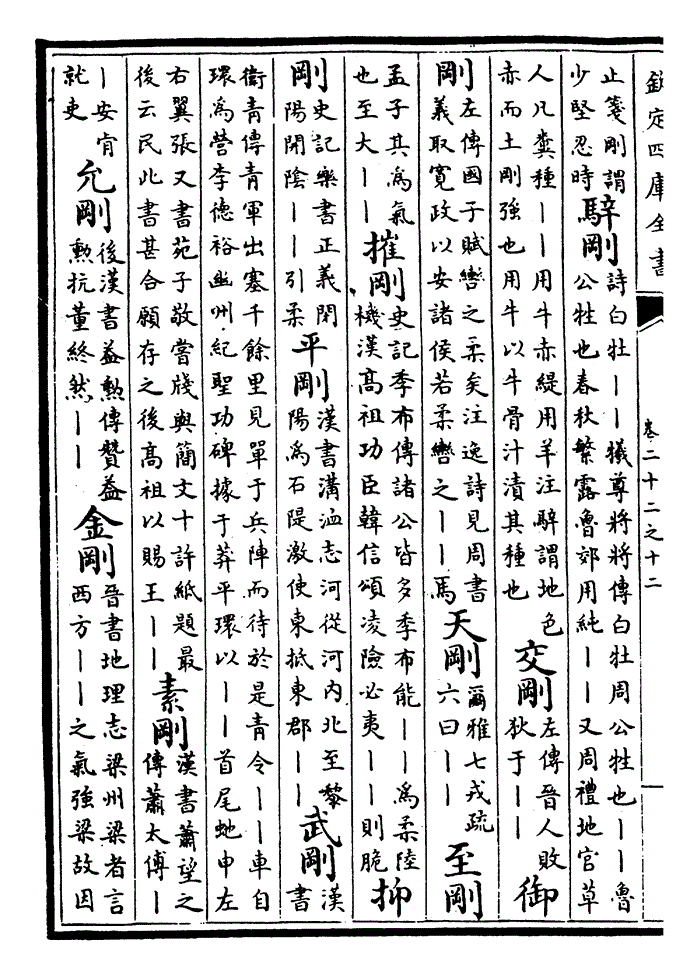 欽定四庫全書 卷二十二之十二
止箋剛謂少堅忍時 騂剛 詩白牡丨丨犧尊將將傳白牡周公牲也丨丨魯公牲也春秋繁露魯郊用純丨丨又周禮地官草
人凡糞種丨丨用牛赤緹用羊注騂謂地色赤而土剛強也用牛以牛骨汁漬其種也 交剛 左傳晉人敗狄于丨丨 御
剛 左傳國子賦轡之柔矣注逸詩見周書義取寬政以安諸侯若柔轡之丨丨馬 天剛 爾雅七戎疏六曰丨丨 至剛
孟子其為氣也至大丨丨 摧剛 史記季布傳諸公皆多季布能丨丨為柔陸機漢高祖功臣韓信頌凌險必夷丨丨則脆 抑
剛 史記樂書正義閉陽開陰丨丨引柔 平剛 漢書溝洫志河從河內北至黎陽為石隄激使東抵東郡丨丨 武剛 漢書
衛青傳青軍出塞千餘里見單于兵陣而待於是青令丨丨車自環為營李德裕幽州紀聖功碑據于莽平環以丨丨首尾虵申左
右翼張又書苑子敬嘗牋與簡文十許紙題最後云民此書甚合願存之後高祖以賜王丨丨 素剛 漢書蕭望之傳蕭太傅丨
丨安肯就吏 允剛 後漢書蓋勲傳贊蓋勲抗董終然丨丨 金剛 晉書地理志梁州梁者言西方丨丨之氣強梁故因